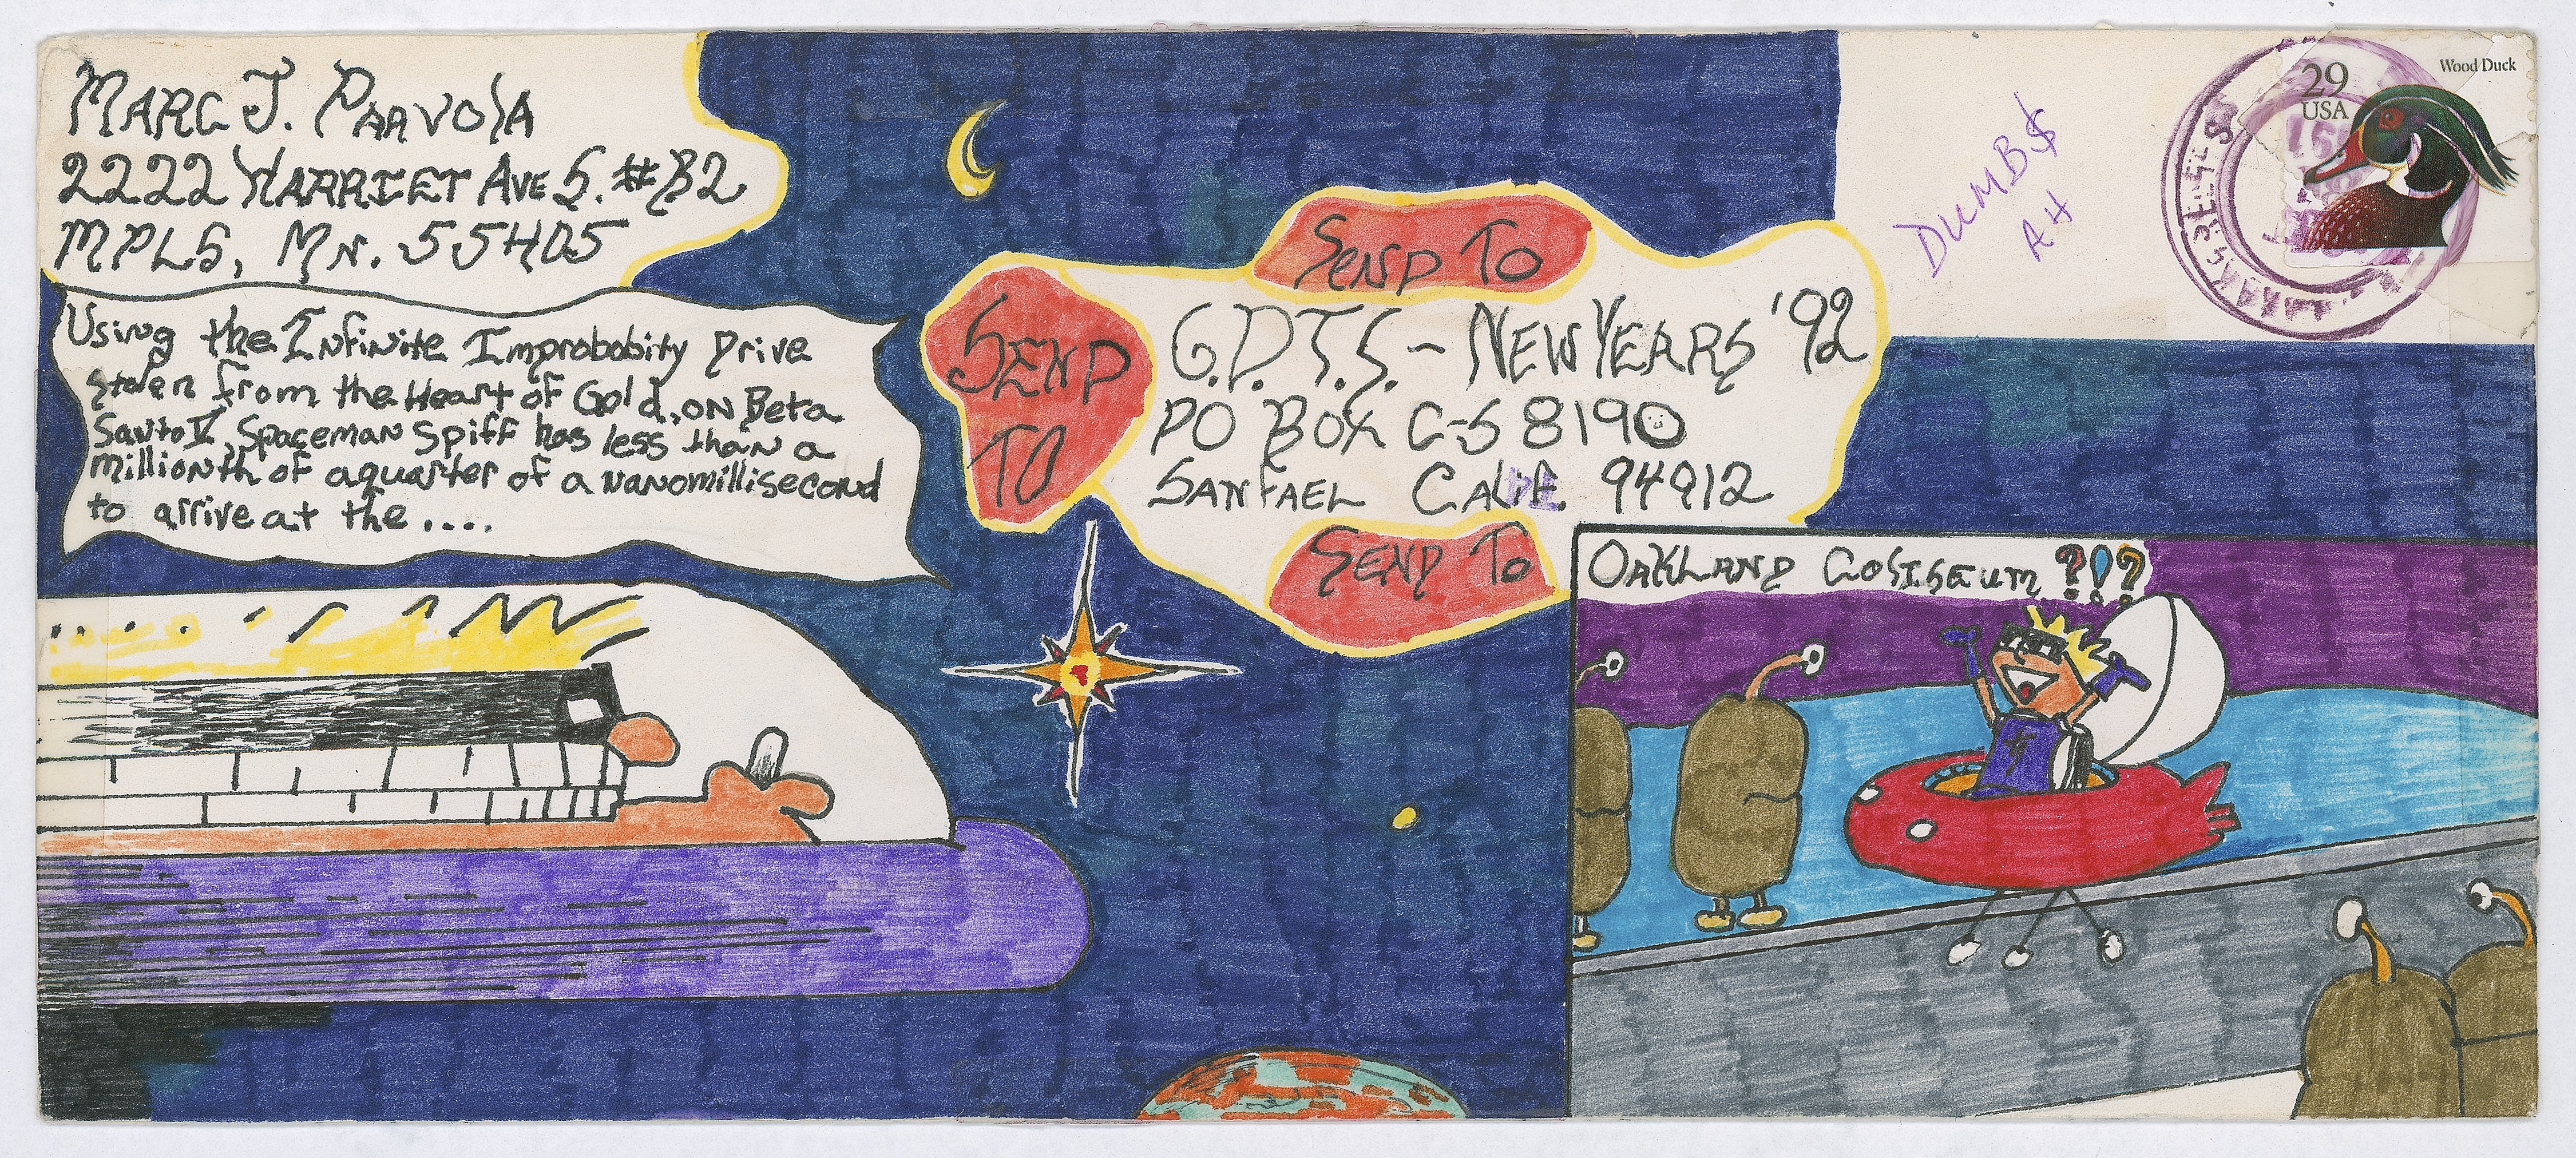 MARC J. PAAVOLA
2222 HARRIET AVE S. #B2
MPLS, MN. 55405
Using the Infinite Improbobity Drive
stolen from the Heart of Gold, on Beta
Santo V, Spaceman Spiff has less than a
millionth of a quarter of a nanomillisecond
to arrive at the ....
SEND TO
SEND
TO
G.D.T.S. - NEW YEARS '92
PO BOX C-S 8190
SANFAEL CALIF. 94912
SEND TO
DUMB$
AH
29
USA
Wood Duck
OAKLAND COLISEUM ?!?